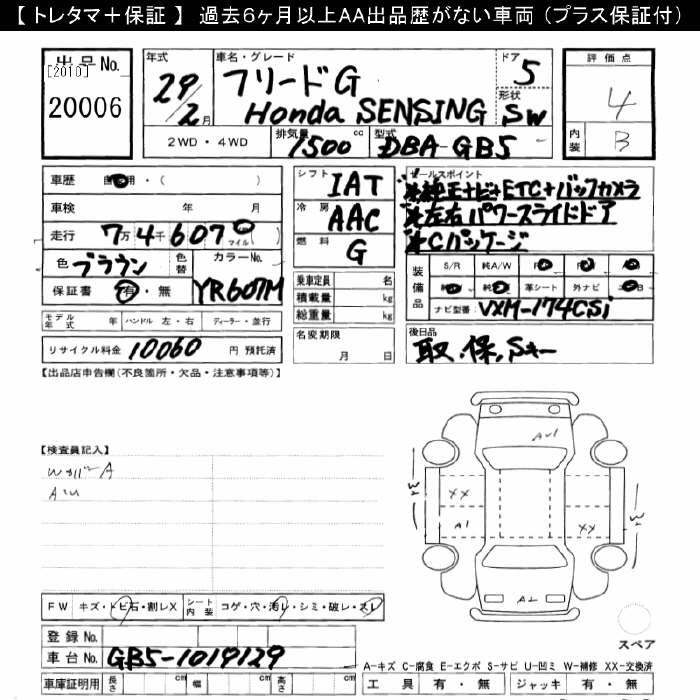 【 トレタマ＋保証 】 過去6ヶ月以上AA出品歴がない車両（プラス保証付）
出品No.
[2010]
20006
年式 29/2月
車名・グレード
フリードG
Honda SENSING
ドア 5
形状 SW
評価点
4
内装 B
2WD・4WD
排気量 1500 cc
型式 DBA-GB5
車歴 自家用・( )
車検 年 月
走行 7万4千607 0 マイル( )
色 ブラウン
色替
カラーNo. YR607M
保証書 有・無
モデル年式 年 ハンドル 左・右 ディーラー・並行
リサイクル料金 10060 円 預託済
シフト IAT
冷房 AAC
燃料 G
乗車定員 名
積載量 kg
総重量 kg
名変期限
月 日
セールスポイント
*純正ナビ+ETC+バックカメラ
*左右パワースライドドア
*Cパッケージ
装備品
S/R 純A/W
革シート 外ナビ
ナビ型番: VXM-174CSi
後日品
取.保.Sキー
【出品店申告欄(不良箇所・欠品・注意事項等)】
【検査員記入】
FW キズ・トビ石・割レX
シート内装 コゲ・穴・汚レ・シミ・破レ・スレ
登録No.
車台No. GB5-1019129
車庫証明用 長さ cm 幅 cm 高さ cm
XX
A1
XX
スペア
A-キズ C-腐食 E-エクボ S-サビ U-凹ミ W-補修 XX-交換済
工具 有・無 ジャッキ 有・無